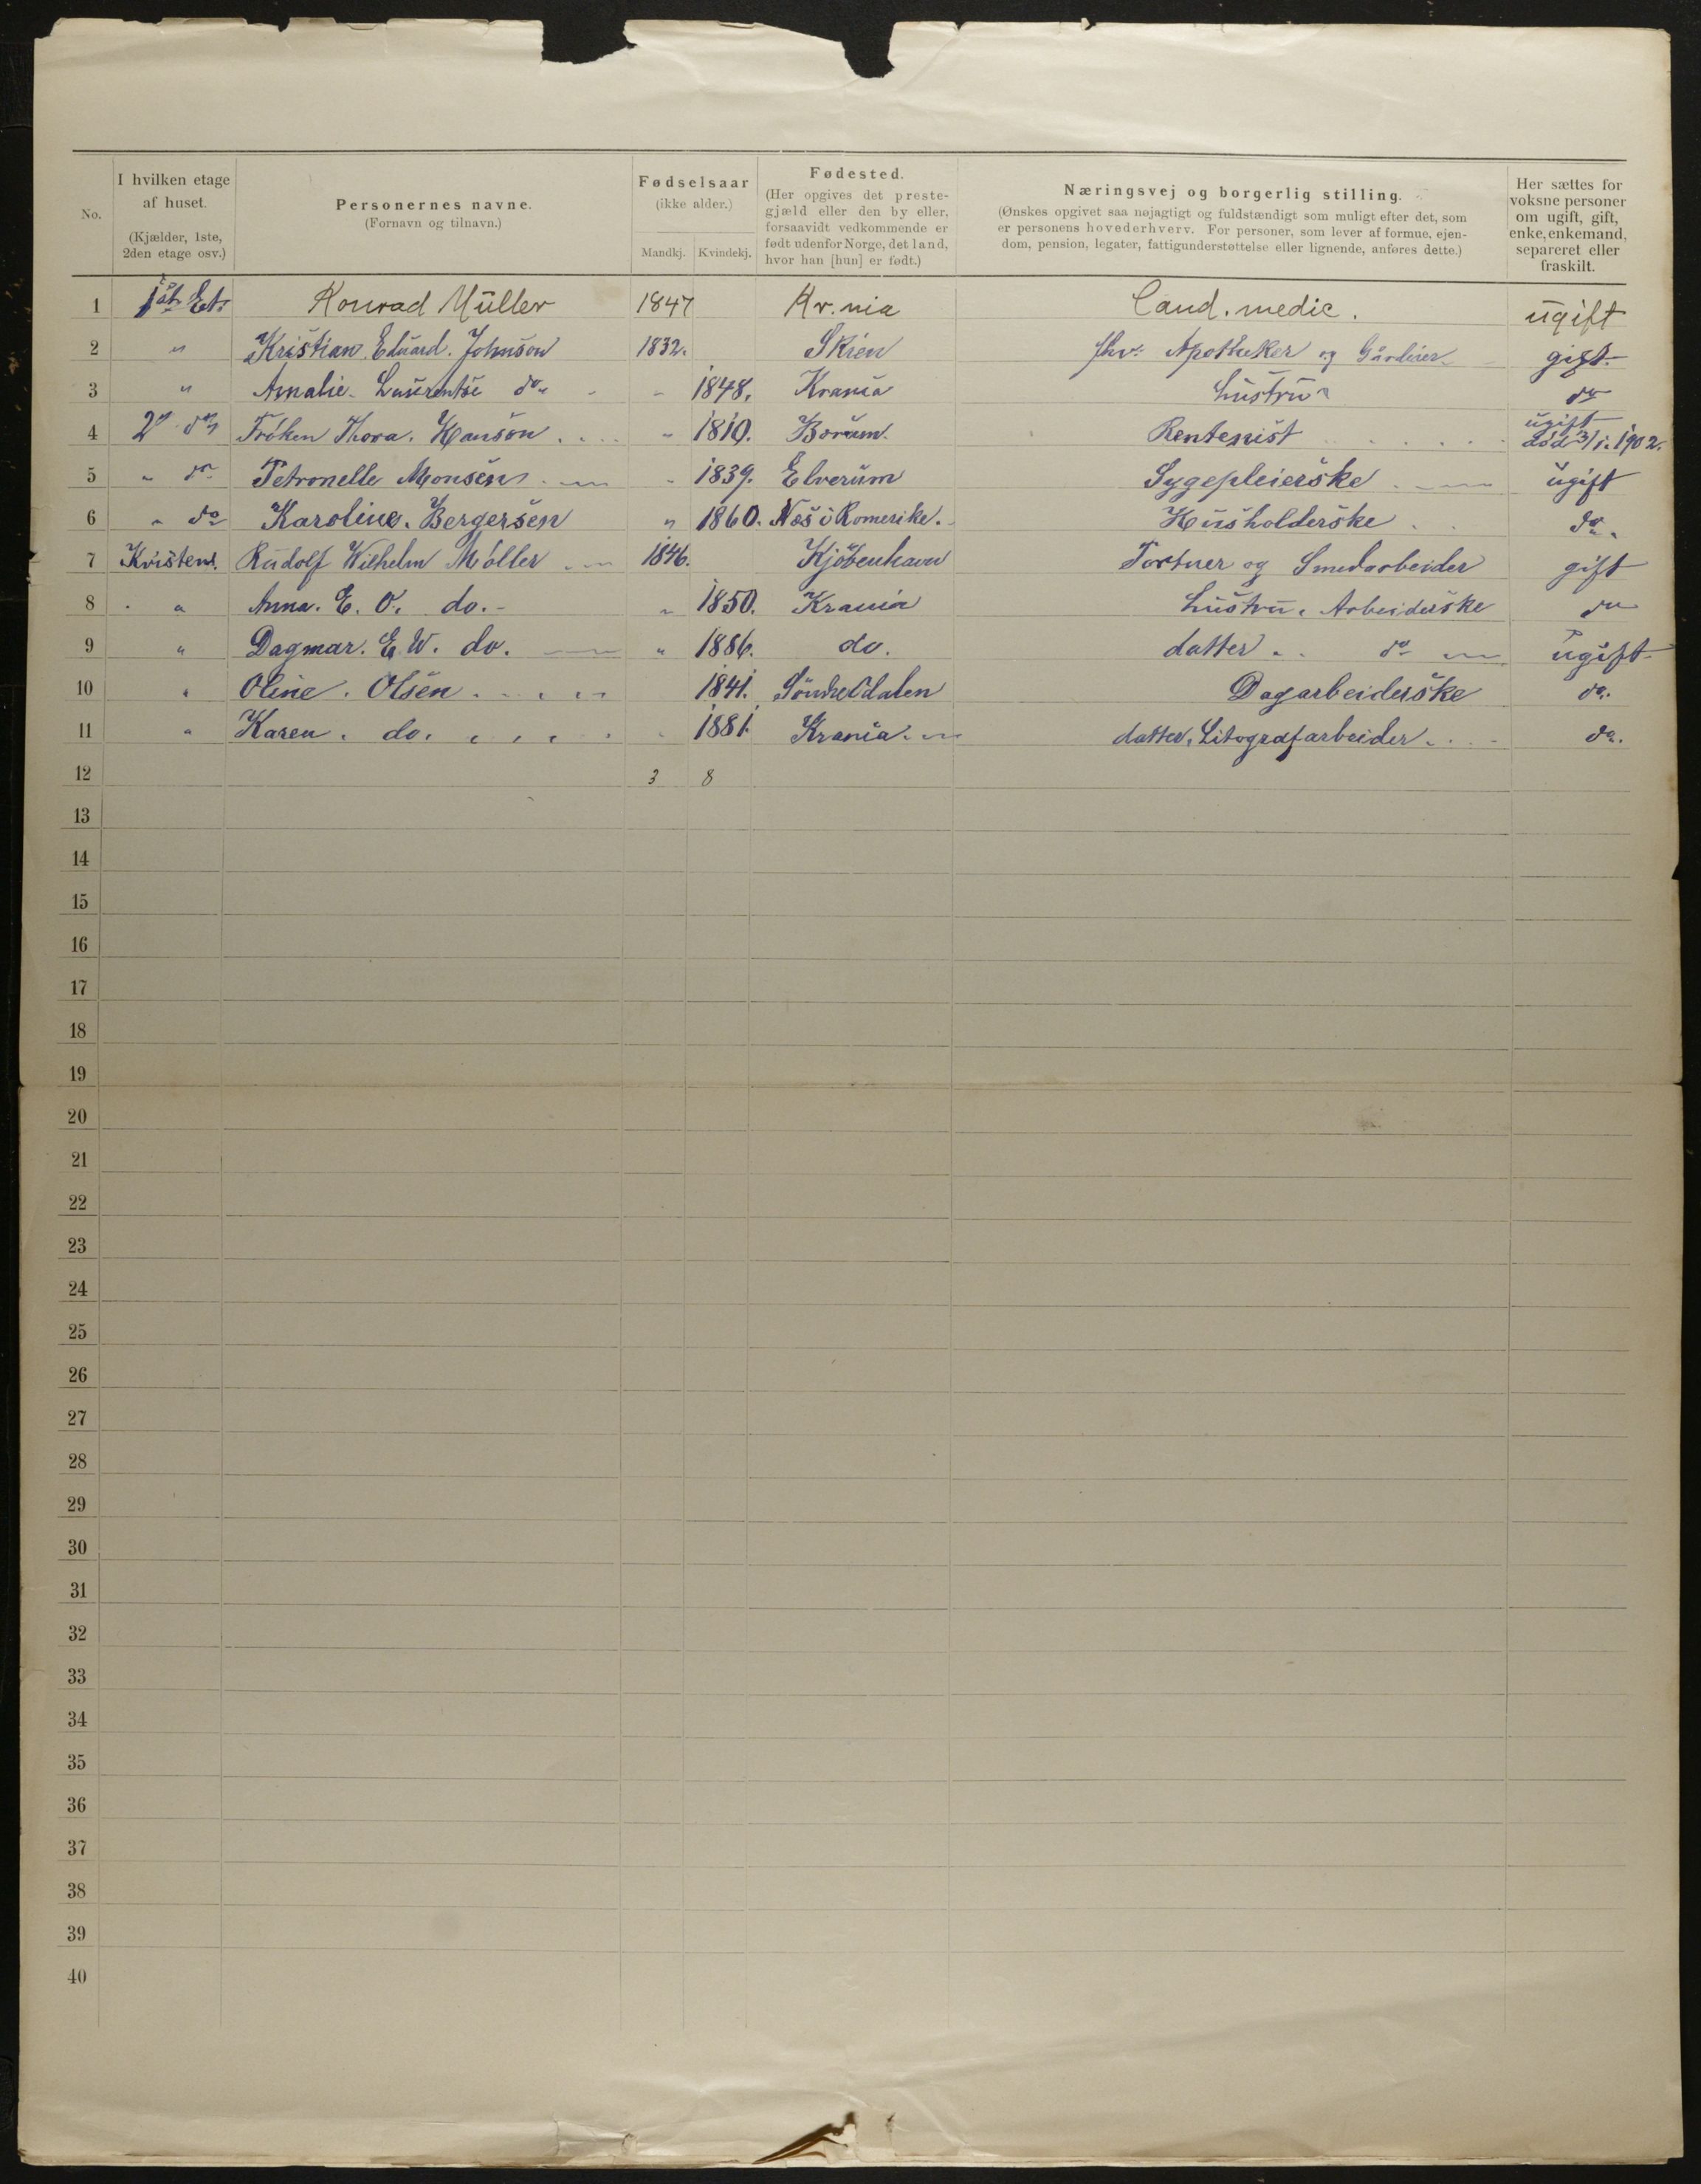 No.
I hvilken etage af huset. (Kjælder, 1ste, 2den etage osv.)
Personernes navne. (Fornavn og tilnavn.)
Fødselsaar (ikke alder.)
Mandkj. Kvindekj.
Fødested. (Her opgives det prestegjæld eller den by eller, forsaavidt vedkommende er født udenfor Norge, det land, hvor han [hun] er født.)
Næringsvej og borgerlig stilling.
(Ønskes opgivet saa nøjagtigt og fuldstændigt som muligt efter det, som er personens hovederhverv. For personer, som lever af formue, ejendom, pension, legater, fattigunderstøttelse eller lignende, anføres dette.)
Her sættes for voksne personer om ugift, gift, enke, enkemand, separeret eller fraskilt.
1 1ste Et. Konrad Müller 1847 Kr.nia Cand. medic. ugift
2 " Kristian Eduard. Johnson 1832. Skien fhv: Apotheker og Gårdeier gift
3 " Amalie Laurentse do " 1848. Krania Hustru do
4 2 do Frøken Thora. Hanson " 1810. Børum Rentenist ugift død 3/1. 1902.
5 " do Petronelle Monsen " 1839. Elverum Sygepleierske ugift
6 " do Karoline. Bergersen " 1860. Næs i Romerike. Husholderske do.
7 Kvisten. Rudolf Wilhelm Møller 1846. Kjøbenhavn Portner og Smedarbeider gift
8 " Anna. E. O. do. " 1850. Krania Hustru. Arbeiderske do
9 " Dagmar. E. W. do. " 1886. do. datter do ugift
10 " Oline. Olsen 1841. Søndeldalen Dagarbeiderske do.
11 " Karen. do. " 1881. Krania datter. Litografarbeider do.
12 3 8
13
14
15
16
17
18
19
20
21
22
23
24
25
26
27
28
29
30
31
32
33
34
35
36
37
38
39
40